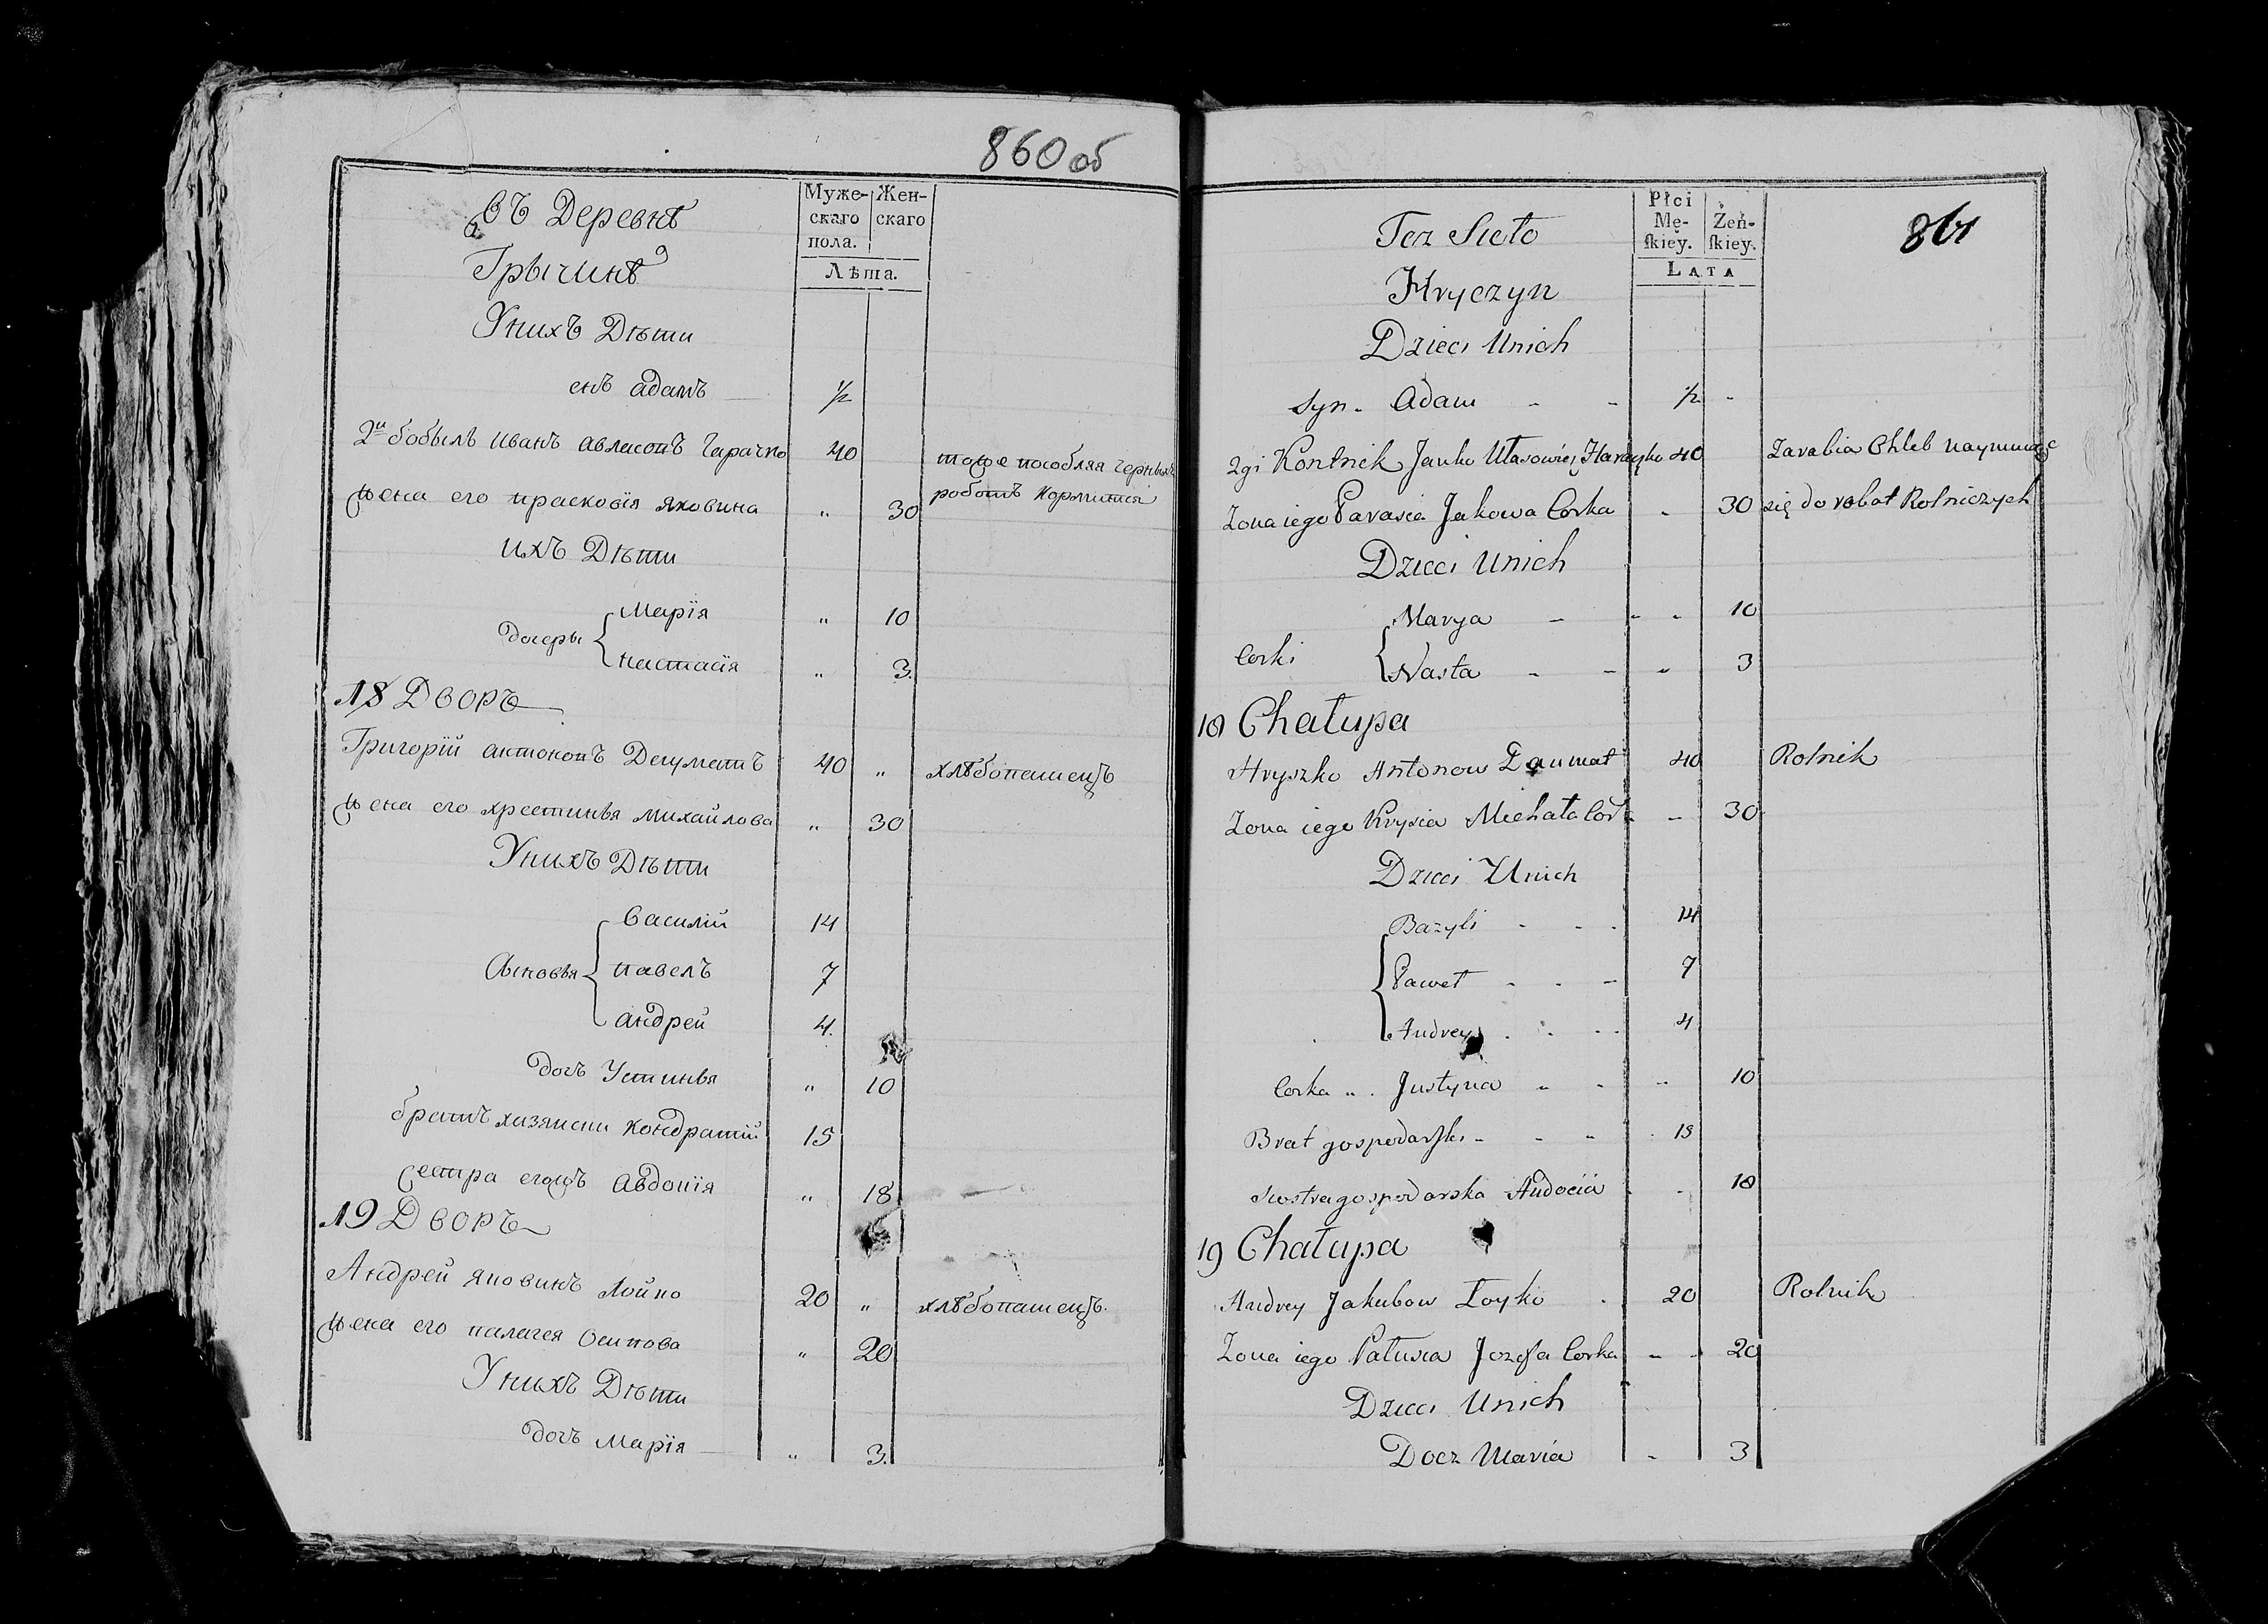 860 об
въ Деревнѣ
Муже-
скаго
пола.
Жен-
скаго
Лѣта.
Грычинѣ
Унихъ Дѣти
снъ адамъ 1/2
2й бобыль Иванъ авласопъ Гарачко 40 тоже пособляя чернымъ
жена его прасковїя Яковина " 30 роботъ кормится
ихъ Дѣти
Марїя " 10
дочеры
настасїя " 3.
18 Дворъ
Григорїй антонопъ Дегуматъ 40 " хлѣбопашецъ
жена его хрестинья михайлова " 30
Унихъ Дѣти
василїй 14
Сыновья павелъ 7
андрей 4.
дочъ Устинья " 10
братъ хазяиски кондратїй 15
Сестра егожъ Авдопїя " 18
19 Дворъ
Андрей яповинъ Лойпо 20 " хлѣбопашецъ.
жена его палагея Осипова " 20
Унихъ Дѣти
дочъ Марїя " 3.
861
Też Sieło
Płci
Mę-
skiey.
Żeń-
skiey.
LATA
Hryczyn
Dzieci Unich
Syn - Adam - - 1/2 -
2gi Kontnik Janko Ułasowicz Haraczko 40 Zarabia Chleb naymuiąc
Zona iego Parasia Jakowa Corka - 30 się do robot Rolniczych
Dzieci Unich
Marya - - - 10
Corki
Nasta - - - 3
18 Chałupa
Hryszko Antonow Daumat 40 Rolnik
Zona iego Krysia Michała Cor - 30
Dzieci Unich
Bazyli - - - 14
Paweł - - - 7
Andrey - - - 4
Corka " . Justyna - - - 10
Brat gospodarski - - - 15
Siostra gospodarska Audocia - - 18
19 Chałupa
Andrey Jakubow Łoyko - 20 Rolnik
Zona iego Pałusia Jozefa Corka - - 20
Dzieci Unich
Docz Maria - 3